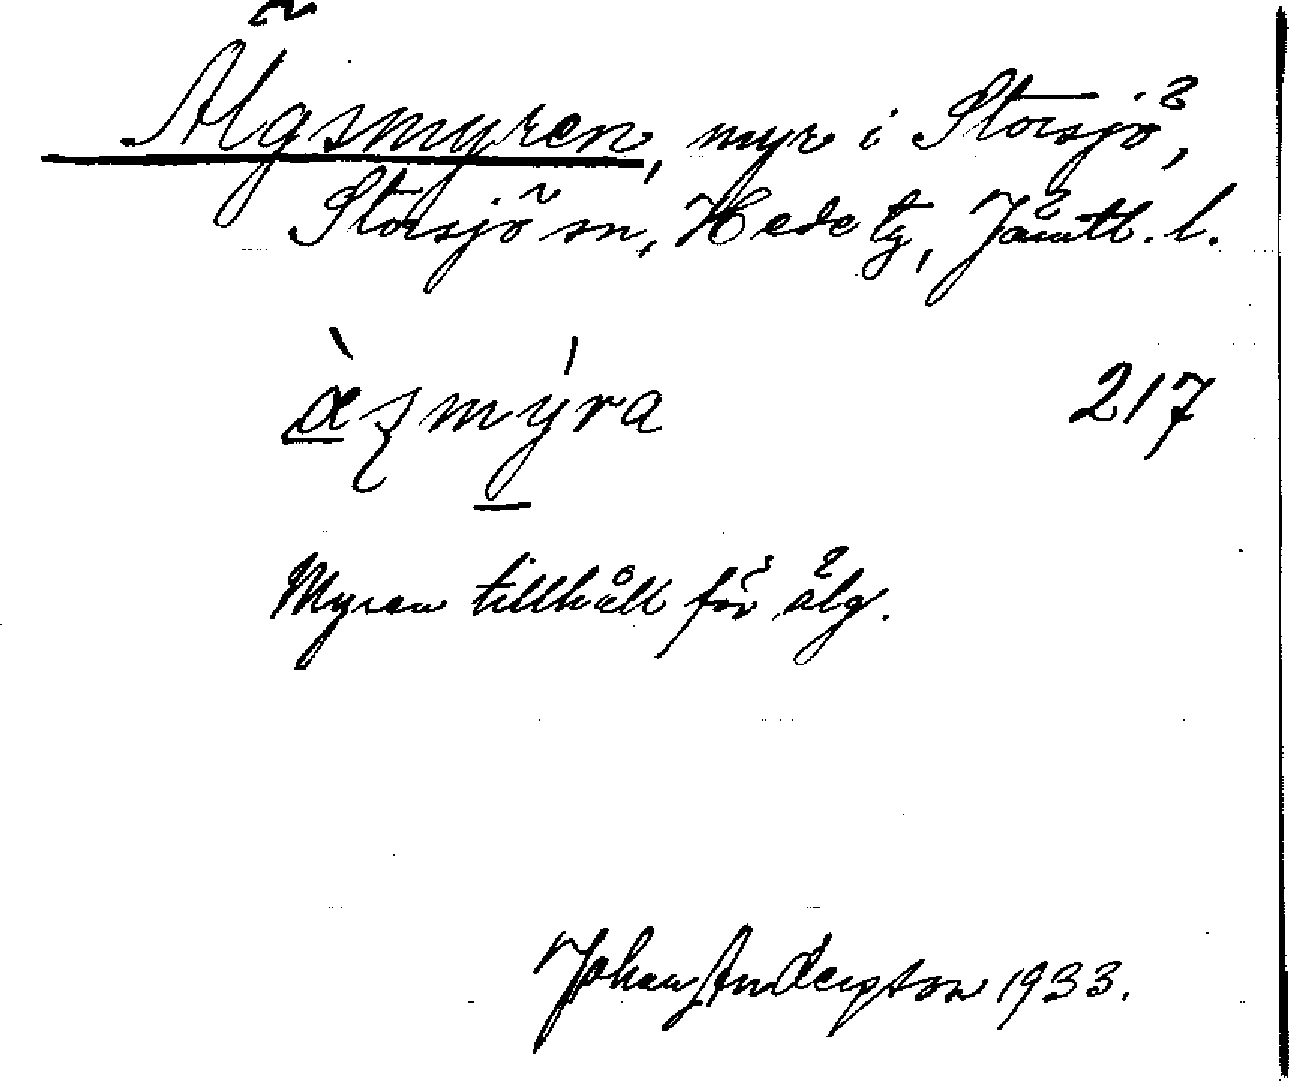 Älgsmyren, myr i Storsjö,
Storsjö sn, Hede tg, Jämtl. l.
æ̀ʂmýra 217
Myren tillhåll för älg.
Johan Andersson 1933.